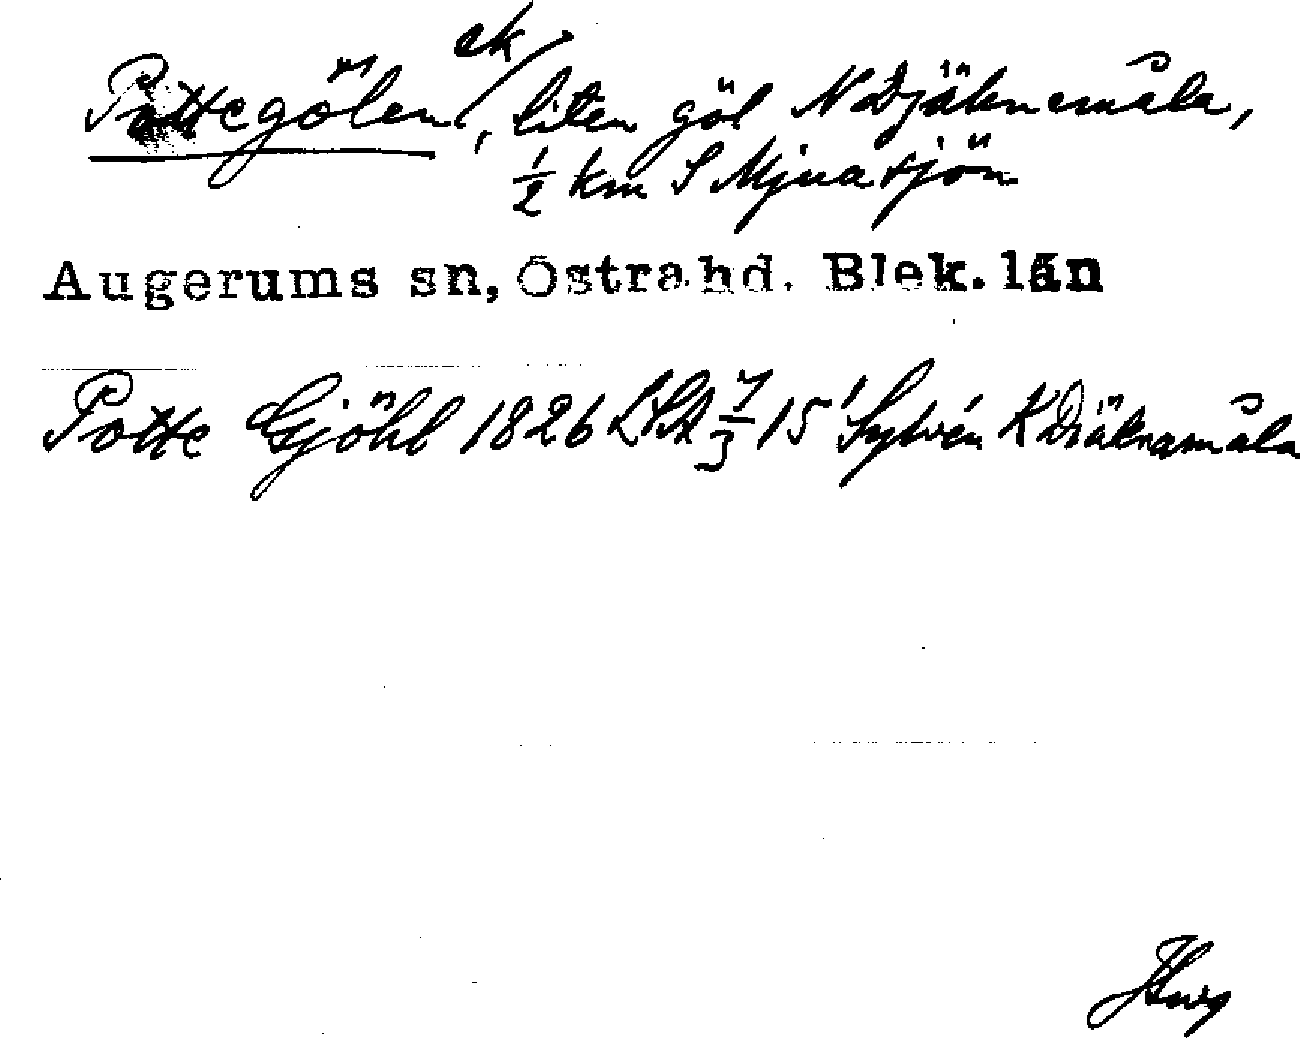 ek
Pottegölen, liten göl N Djäknemåla,
1/2 km S Mjuasjön
Augerums sn, Östra hd. Blek. län
Potte Gjöhl 1826 LSA 7/3 15 Sylvén K Diäknamåla